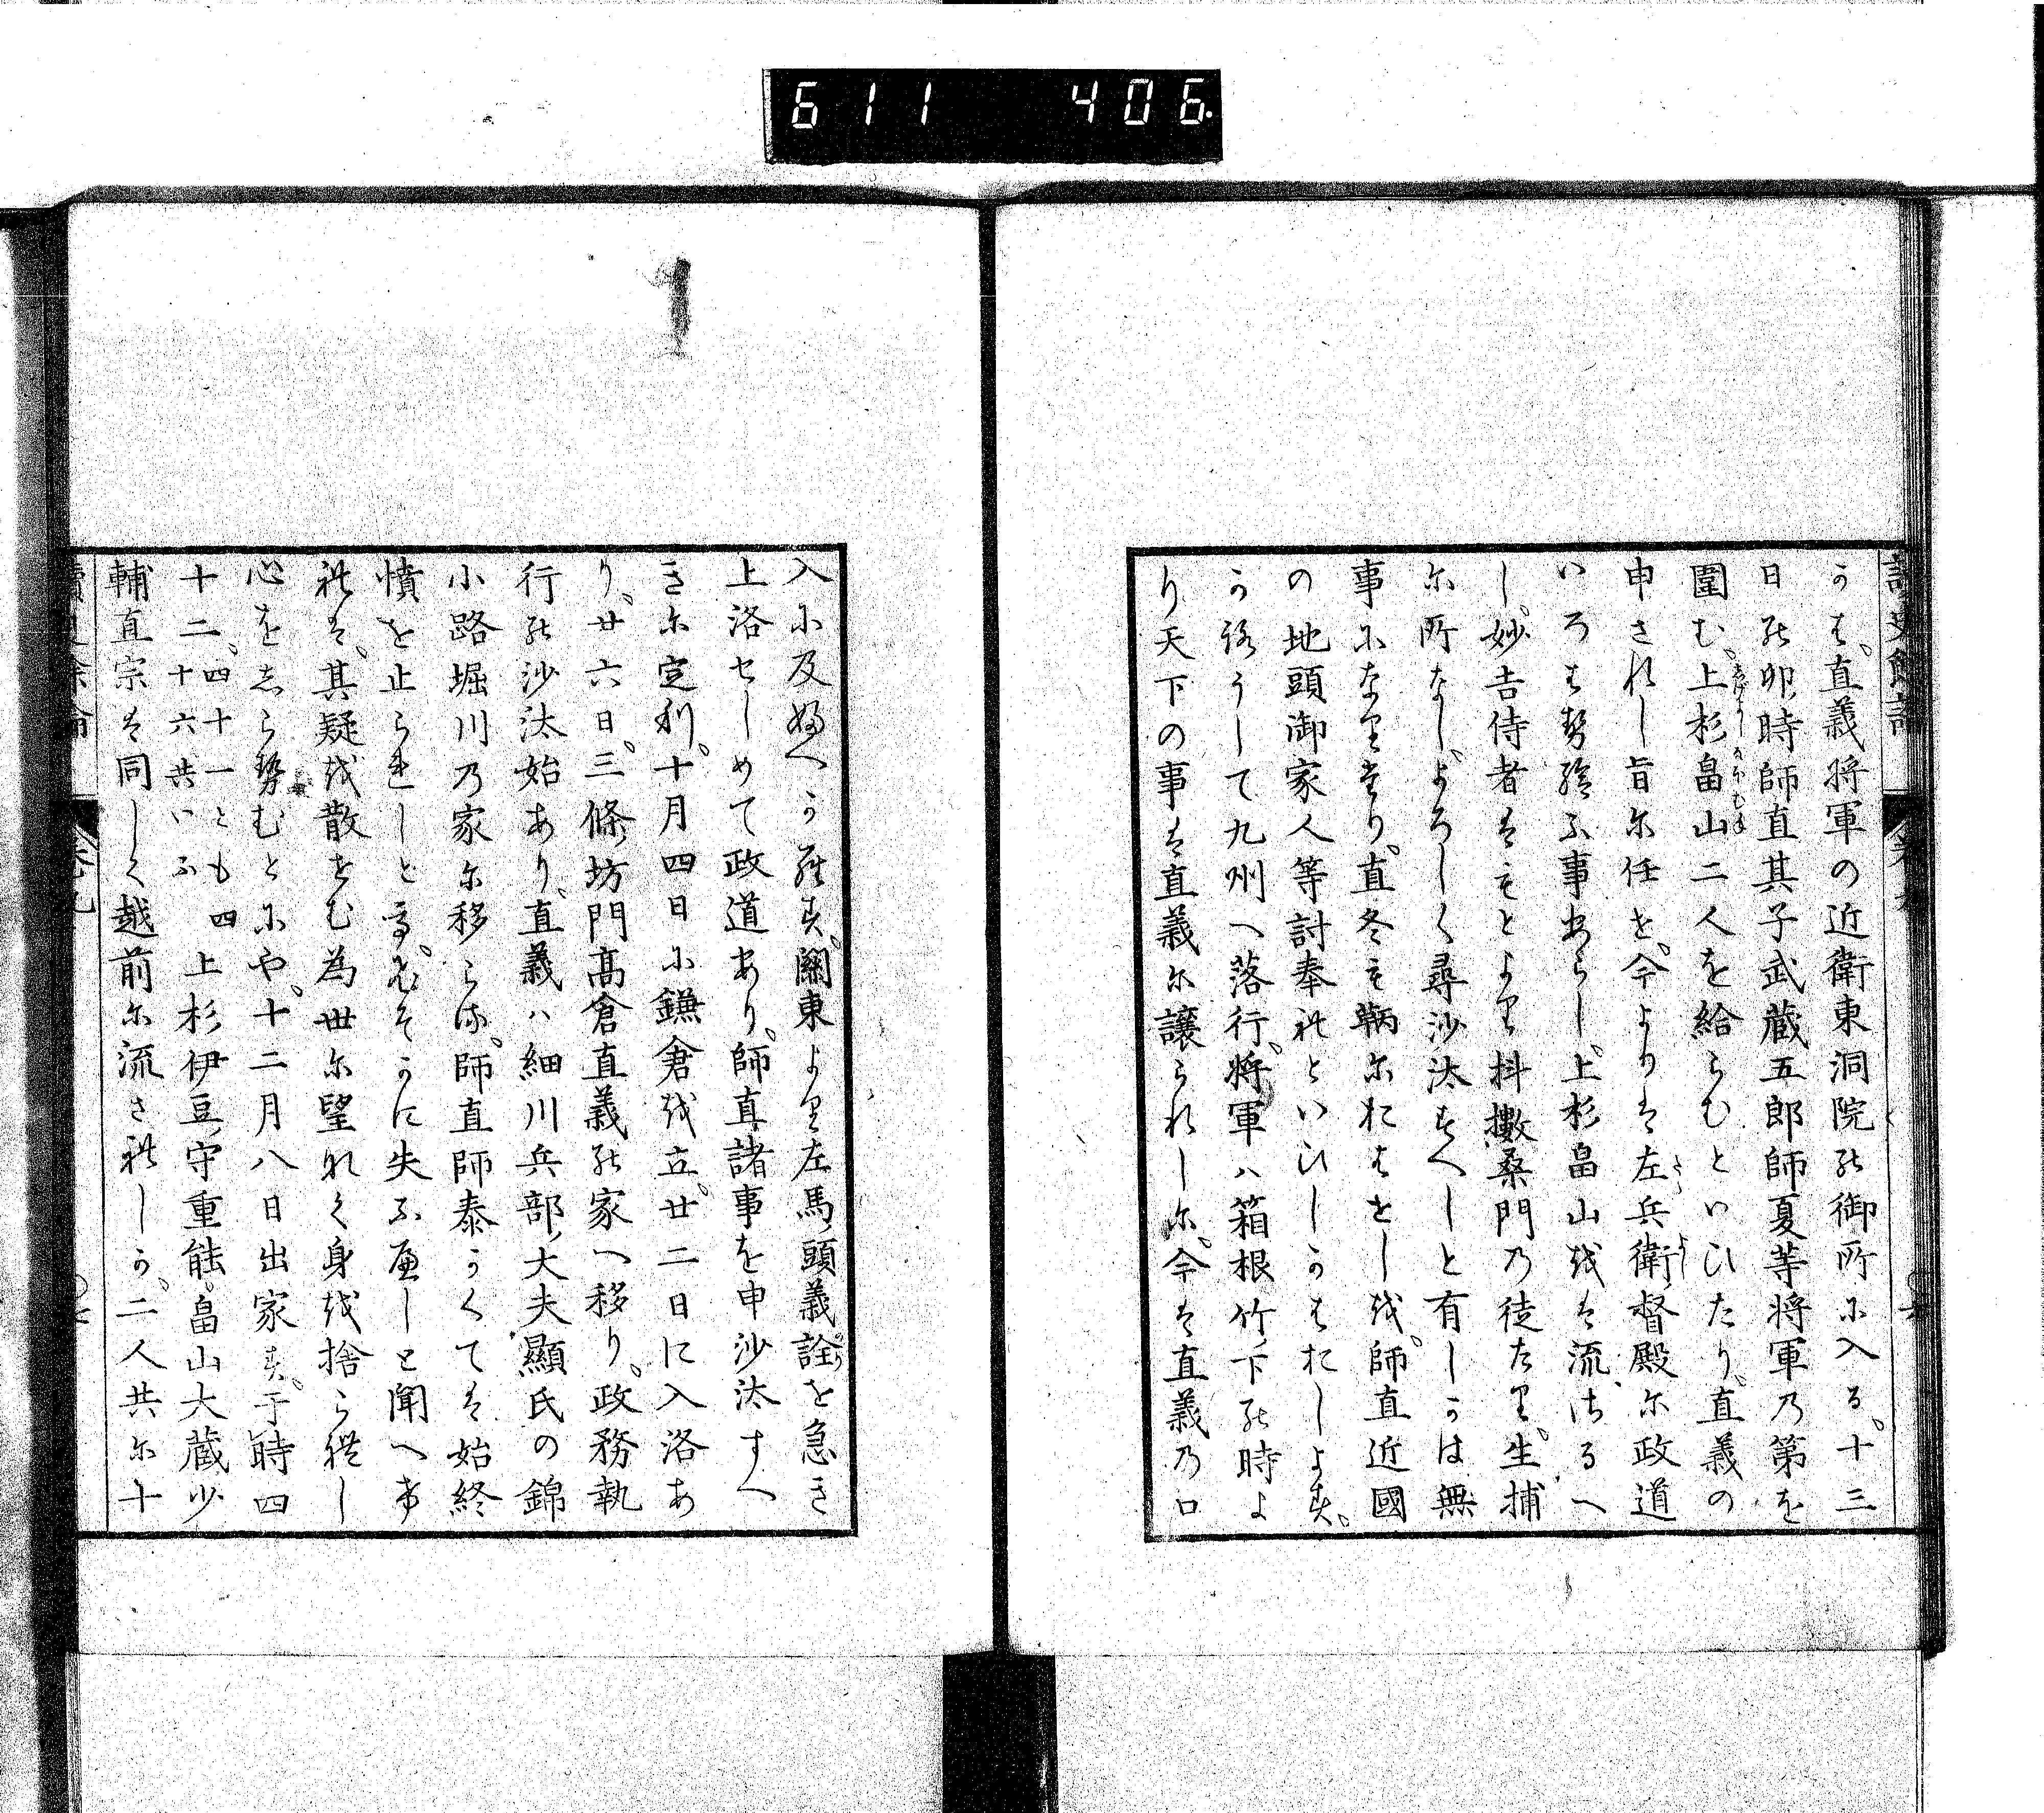 611 406.
かは、直義将軍の近衛東洞院の御所に入る。十三
日の卯時師直其子武蔵五郎師夏等将軍の第を
圍む。上杉畠山二人を給らむといひたり。直義の
申されし旨に任せ。今よりは左兵衛督殿に政道
いろはせ給ふ事あらし。上杉畠山をは流さるへ
し。妙吉侍者はもとより抖擻桑門の徒たり。生捕
に所なし。よろしく尋沙汰すへしと有しかは無
事になりたり。直冬も鞆におはせしを。師直近國
の地頭御家人等討奉れといひしかはおしよす。
から うして九州へ落行。将軍ハ箱根竹下の時よ
り天下の事は直義に譲られしに。今は直義の口
入に及ふへからす。關東より左馬頭義詮を急き
上洛せしめて政道あり。師直諸事を申沙汰すへ
きに定利。十月四日に鎌倉を立。廿二日に入洛あ
り。廿六日。三條坊門髙倉直義の家へ移り。政務執
行の沙汰始あり。直義ハ細川兵部大夫顯氏の錦
小路堀川の家に移らる。師直師泰かくては始終
憤を止られしと る。 そかに失ふへしと聞へけ
れは。其疑を散せむ為世に望なく身を捨られし
心をしらせむとにや。十二月八日出家す。于時四
十二。四十一とも四十六共いふ 上杉伊豆守重能。畠山大蔵少
輔直宗は同しく越前に流されしか。二人共に十